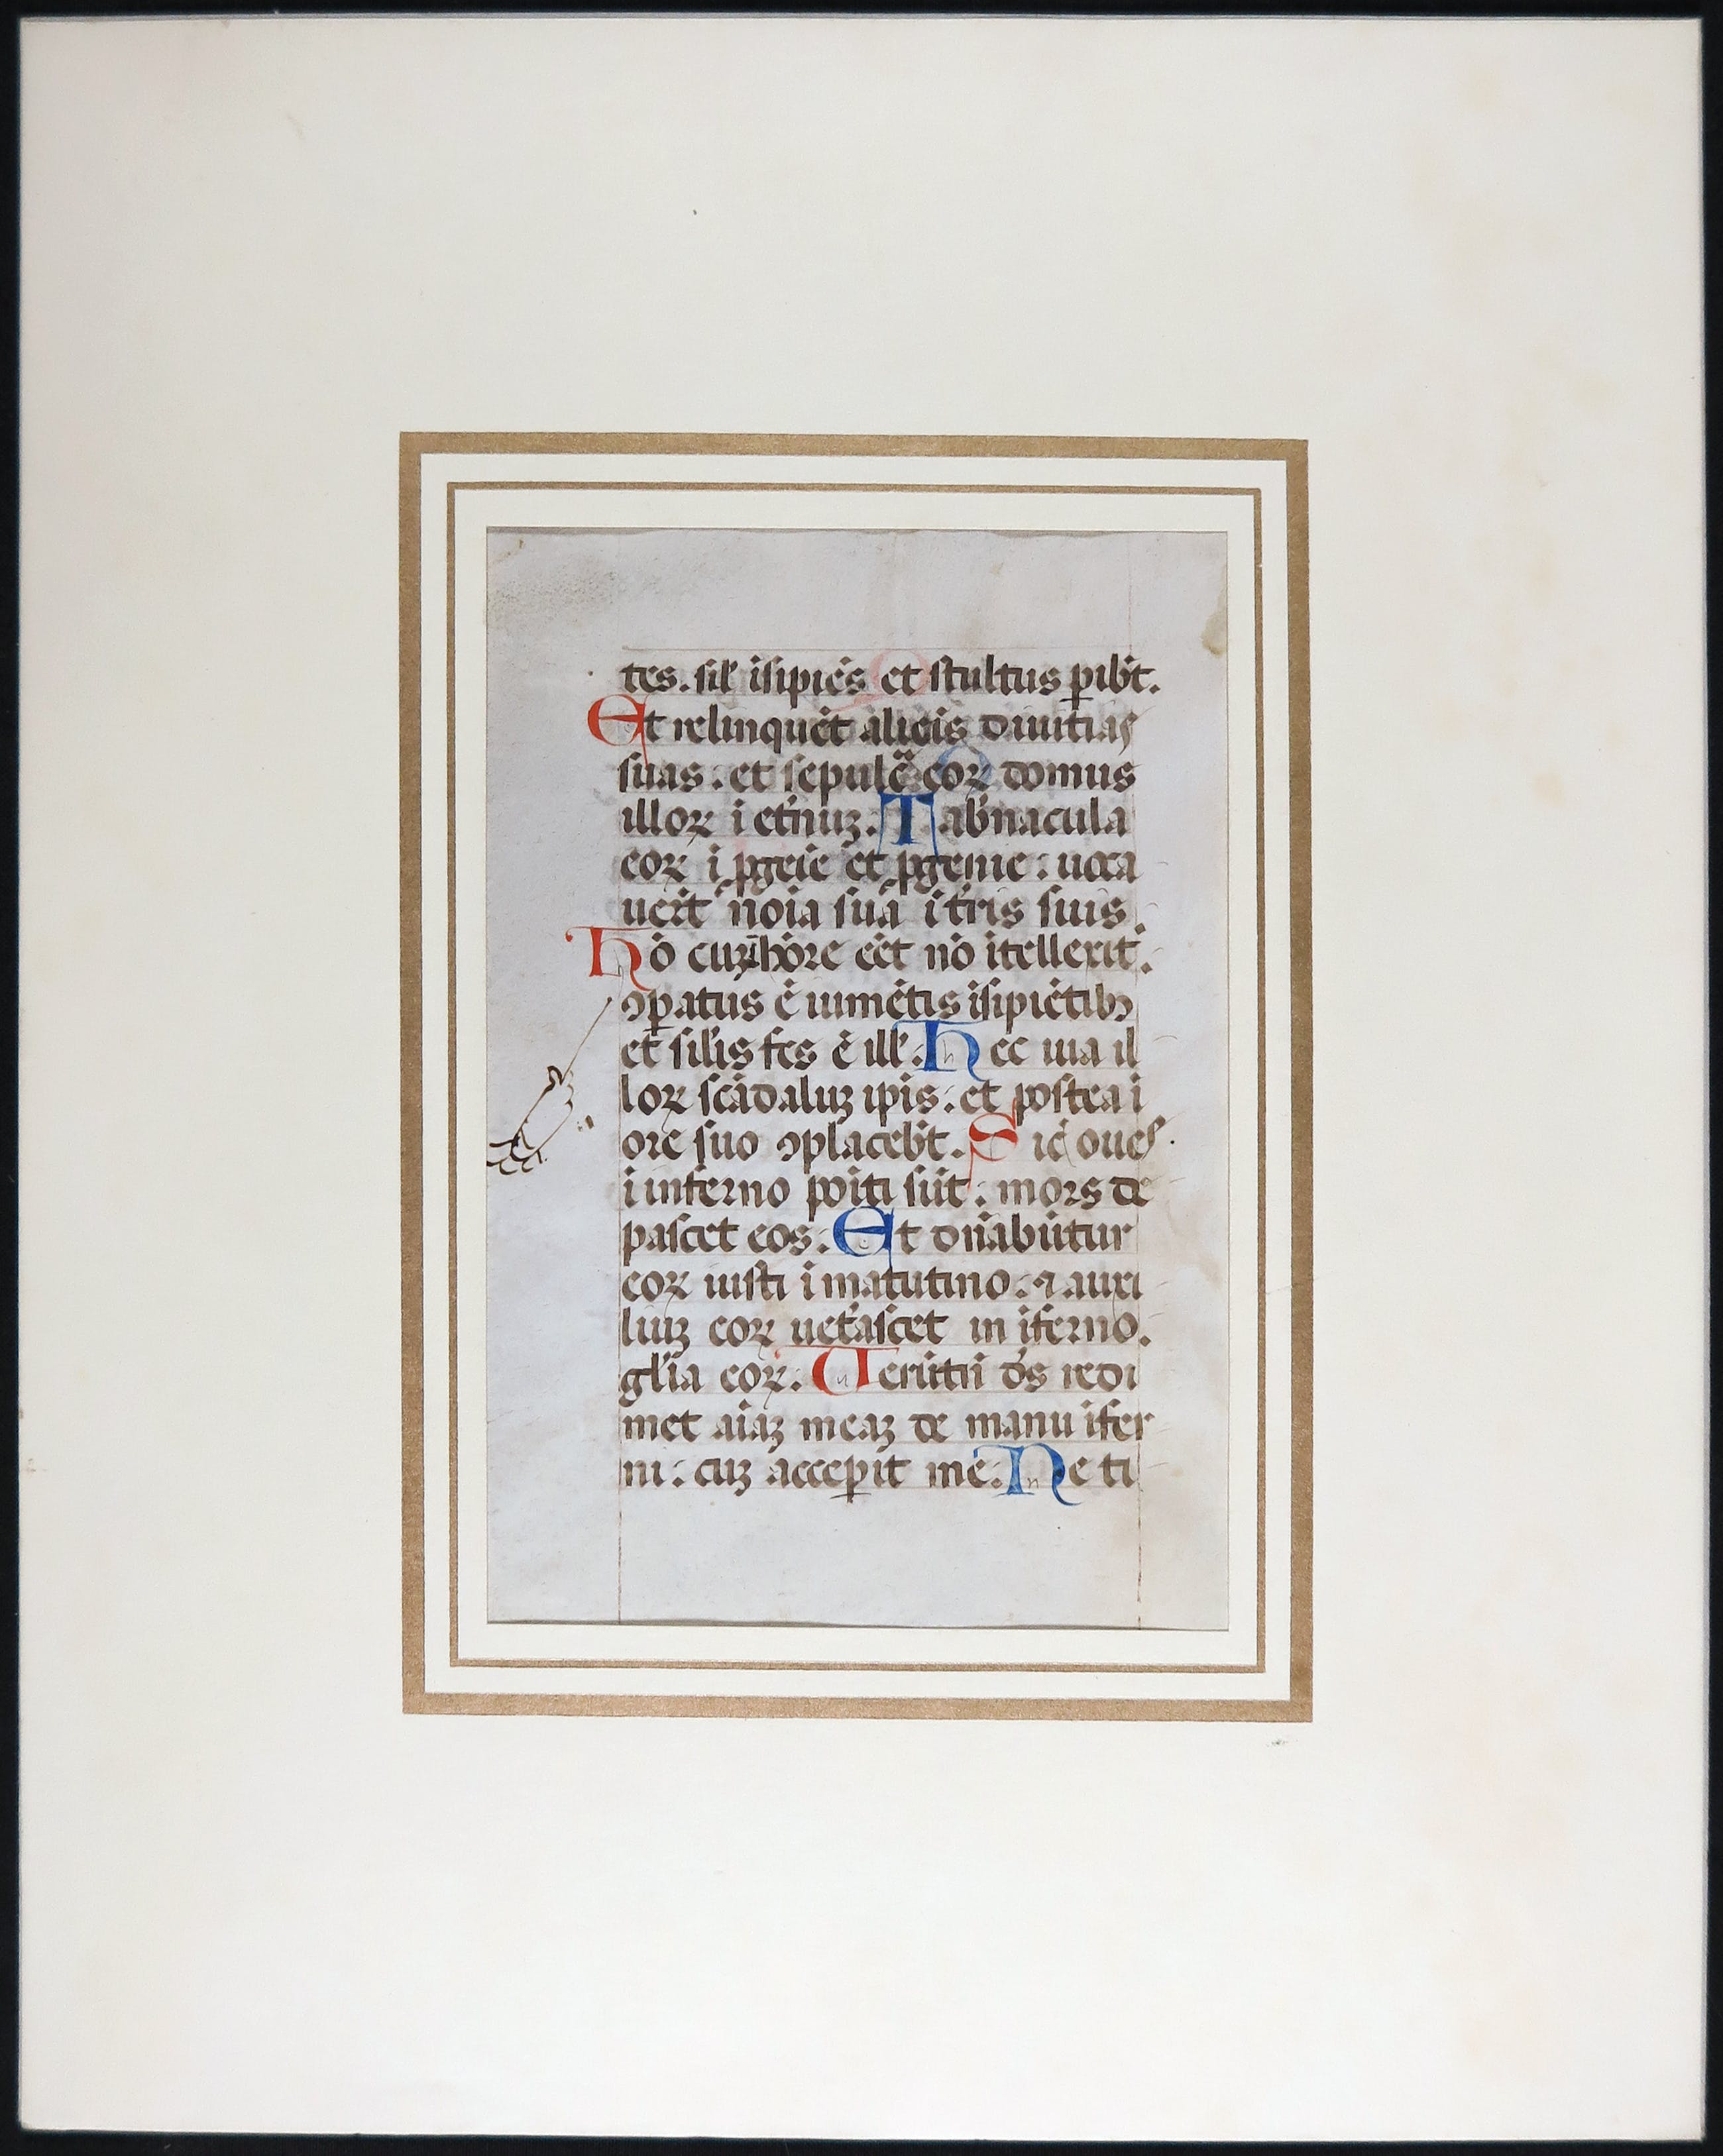 tes. sil' isipiēs et stultus ꝑibt̄.
Et relinquēt alieis diuitias
suas. et sepulc̄ᵃ eoꝝ domus
illoꝝ i et'nuꝫ. Tab'nacula
eoꝝ i ꝓgēie et ꝓgenie: uoca
uērt noīa sua i t'ris suis.
Hō cuꝫ i hōre eēt nō itellexit.
ꝯꝑatus ē iumētis isipiētibꝫ
et sil'is fc̄s ē ill'. Hec uia il
loꝝ scādaluꝫ ipis: et postea i
ore suo ꝯplacebt̄. Sic̄ oues
i inferno poiti sūt: mors de
pascet eos: Et dn̄abūtur
eoꝝ iusti i matutino: ⁊ auxi
liuꝫ eoꝝ uet'ascet in iferno.
gl'ia eoꝝ. Uerūtn̄ ds̄ redi
met aiaꝫ meaꝫ de manu ifer
ni: cuꝫ acceꝑit mē. Ne ti